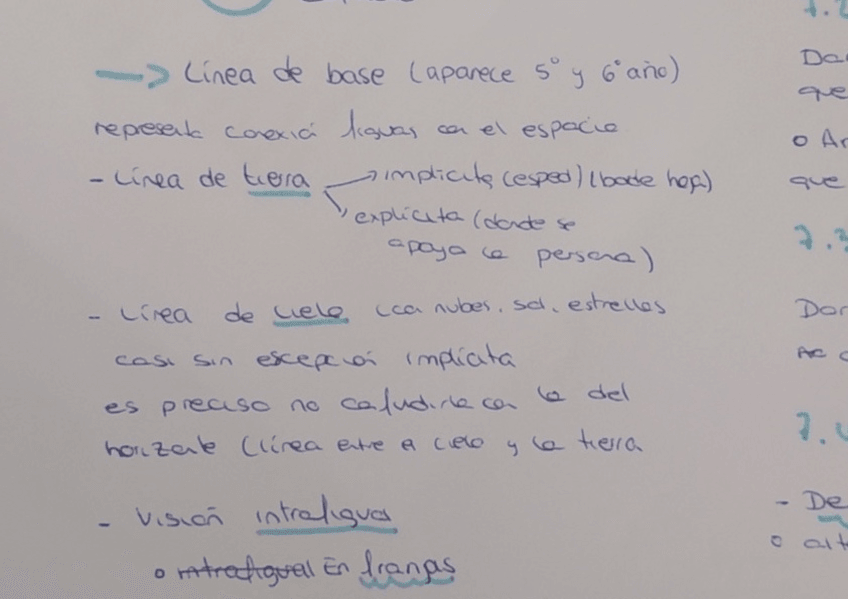 → Línea de base (aparece 5º y 6º año)
representa conexión figuras con el espacio
- Línea de tierra → implícita (esped) (borde hoja)
→ explícita (donde se
apoya la persona)
- Línea de cielo (con nubes, sol, estrellas
casi sin escepción implícita
es preciso no confundirla con la del
horizonte (línea entre el cielo y la tierra
- Visión intrafigural
o intrafigural En franjas
Da
que
o Ar
que
7.3
Dar
7.
- De
o alt